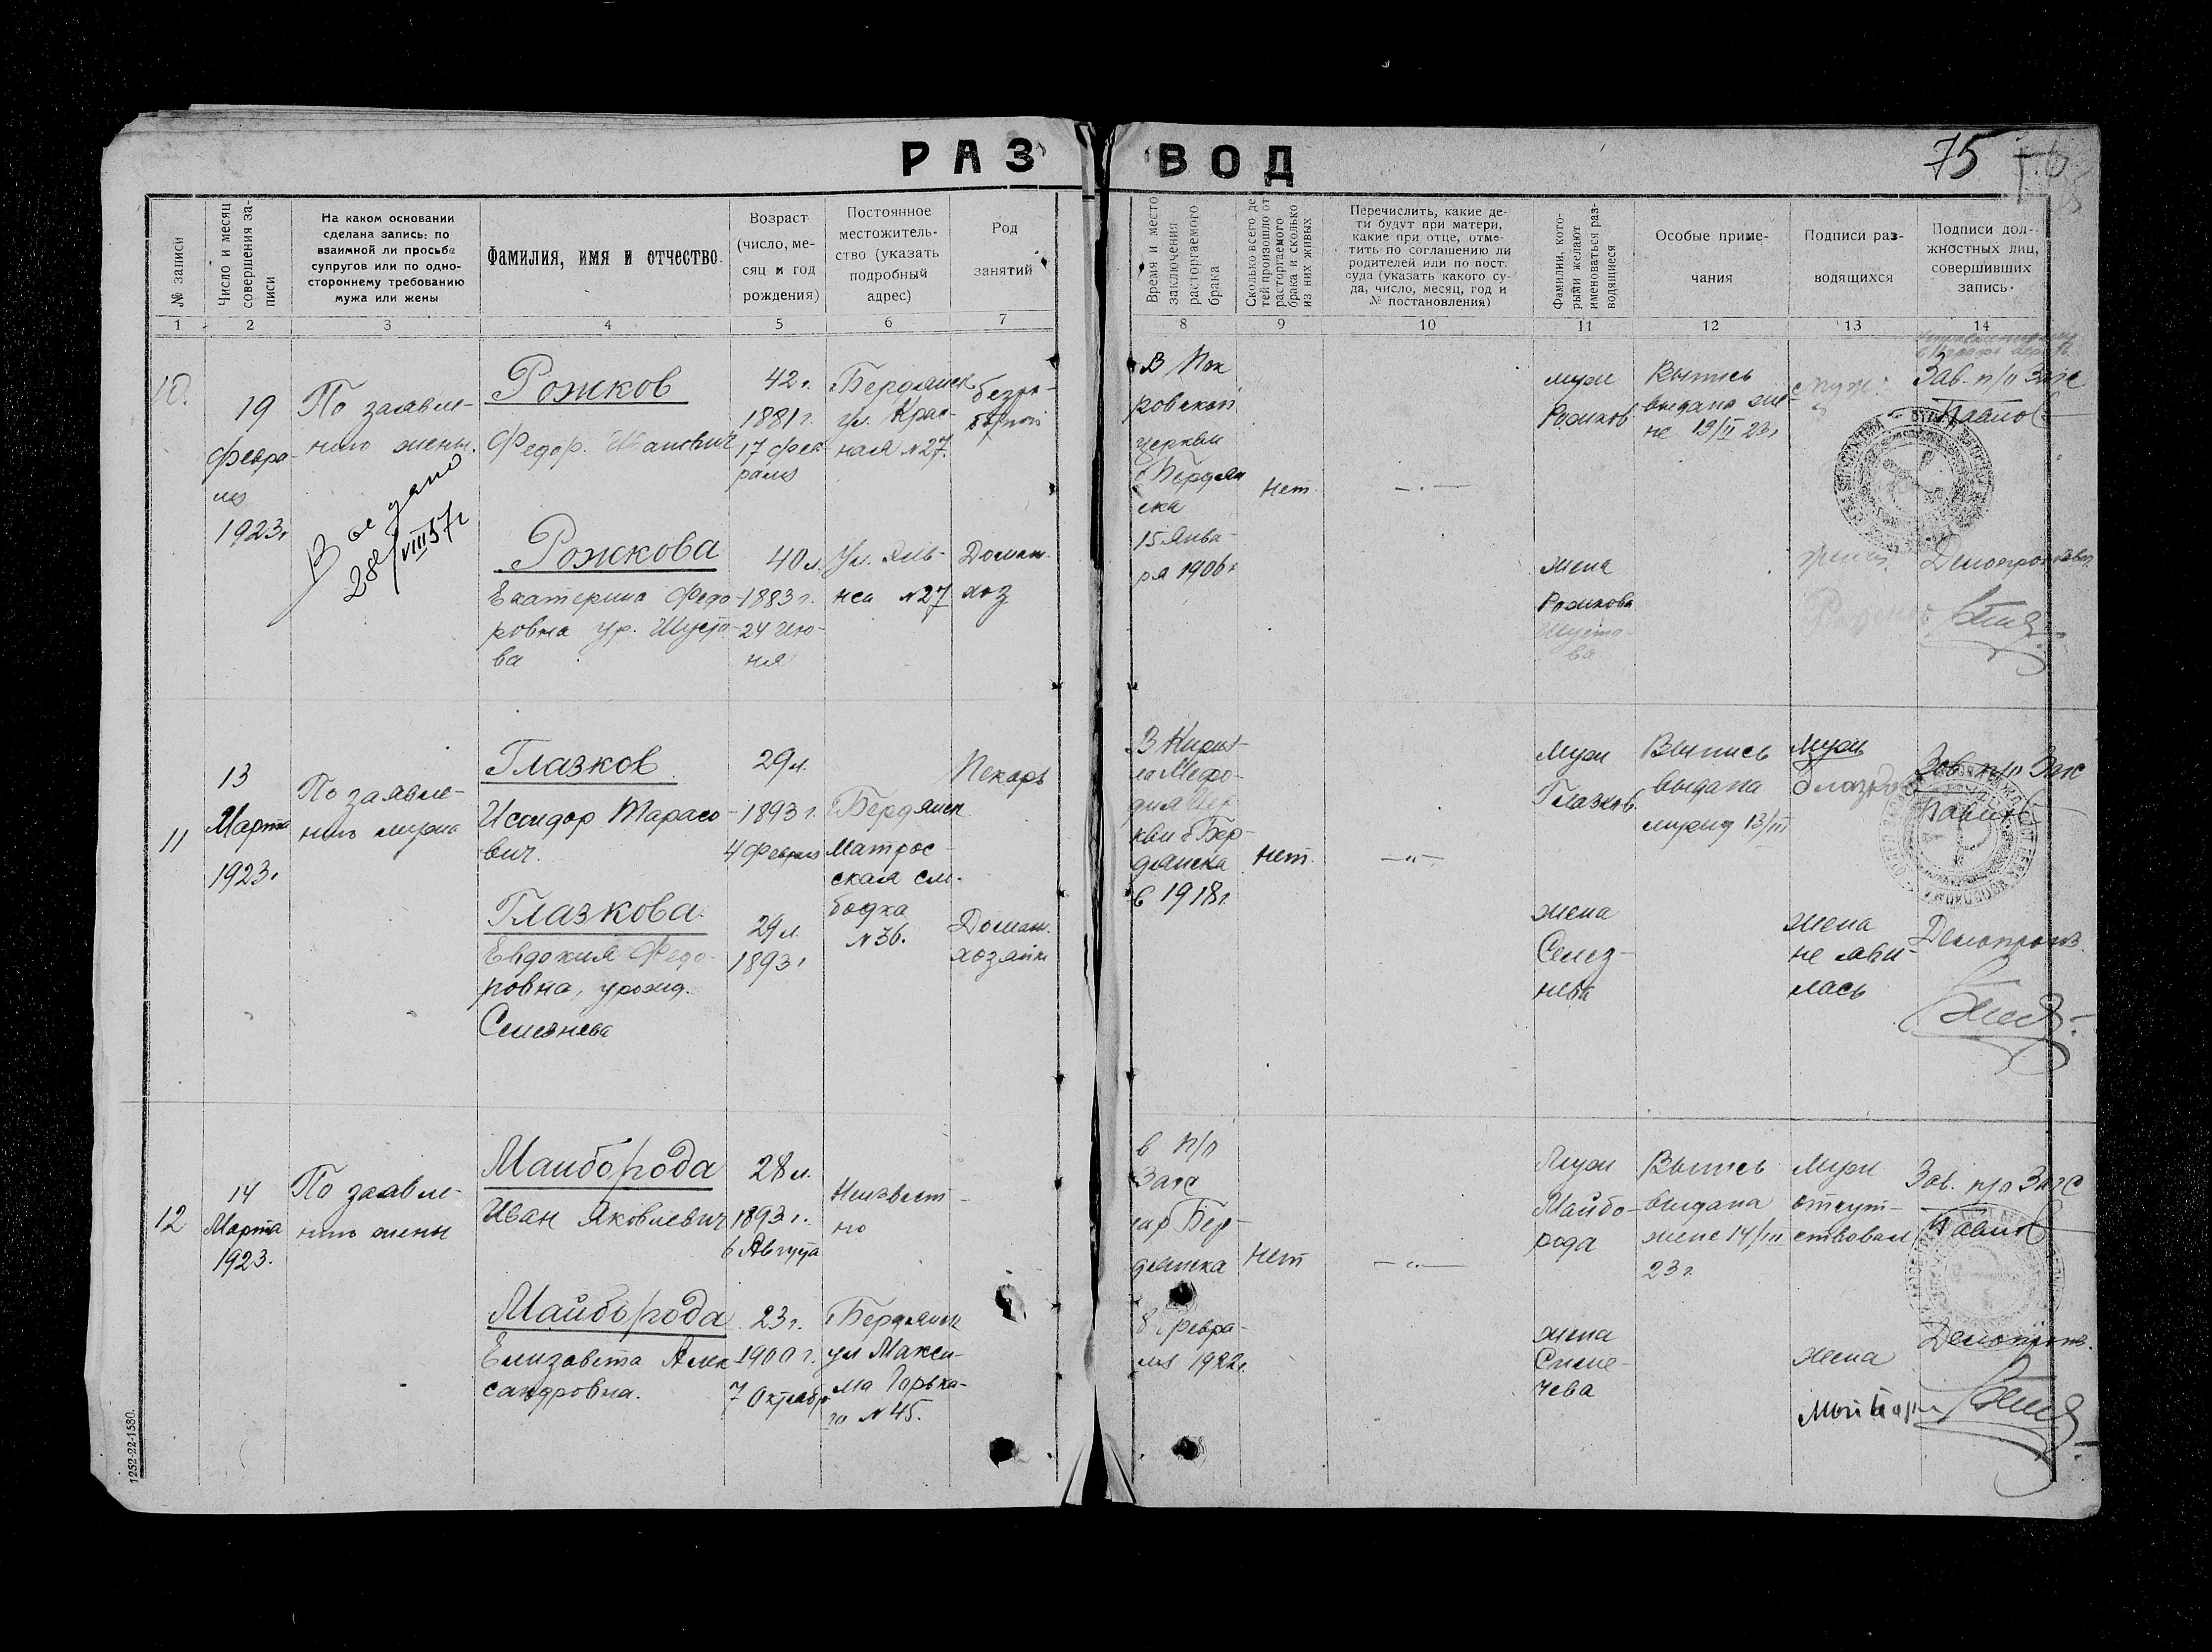 РАЗ ВОД
75
№ записи
Число и месяц совершения записи
На каком основании
сделана запись: по
взаимной ли просьбе
супругов или по одно-
стороннему требованию
мужа или жены
Фамилия, имя и отчество.
Возраст
(число, ме-
сяц и год
рождения)
Постоянное
местожитель-
ство (указать
подробный
адрес)
Род
занятий
Время и место
заключения
расторгаемого
брака
Сколько всего де-
тей произошло от
расторгаемого
брака и сколько
из них живых
Перечислить, какие де-
ти будут при матери,
какие при отце, отме-
тить по соглашению ли
родителей или по пост.
суда (указать какого су-
да, число, месяц, год и
№ постановления)
Фамилии, кото-
рыми желают
именоваться раз-
водящиеся
Особые приме-
чания
Подписи раз-
водящихся
Подписи дол-
жностных лиц,
совершивших
запись.
1 2 3 4 5 6 7 8 9 10 11 12 13 14
10.
19
Февра-
ля
1923г
По заявле-
нию жены.
Выдано
28/VIII 57г
Рожков
Федор Иванович
42г.
1881г.
17 Фев
раля
Бердянск
ул. Крас-
ная №27.
безра-
ботный
Рожкова
Екатерина Федо-
ровна ур. Шусто-
ва
40л.
1883г.
24 Ию-
ня
Домаш.
хоз
№27
В Пок
ровской
церкви
г Бердян
ска
15 Янва-
ря 1906г
Нет
муж
Рожков
жена
Рожкова
Шусто-
ва
Выпись
выдана же-
не 19/II 23г
муж:
Зав. п/о Загс
Павлов
Делопроизвод.
11
13
Марта
1923г
По заявле-
нию мужа
Глазков
Исидор Тарасо-
вич.
29л.
1893г.
4 Февраля
Бердянск
Матрос-
ская сло-
бодка
№36.
Пекарь
Глазкова
Евдокия Федо-
ровна, урожд.
Селезнева
29л.
1893г
Домаш.
хозяйк
В Кирил-
ло Мефо-
дия Цер
кви г Бер-
дянска
в 1918г.
Нет
Муж
Глазков.
жена
Селез-
нева
Выпись
выдана
мужу 13/III
Муж
Глазков
жена
не яви-
лась
Зав. п/о Загс
Павлов
Делопроизв.
12
14
Марта
1923.
По заявле-
нию жены
Майборода
Иван Яковлевич
28л.
1893г.
6 Августа
Неизвест-
но
Майборода
Елизавета Алек
сандровна.
23г.
1900г.
7 Октября
Бердянск
ул Макси-
ма Горька-
го №45.
в п/о
Загса
гор Бер-
дянска
8 Февра-
ля 1922г.
Нет
Муж
Майбо-
рода
жена
Выпись
выдана
жене 14/III
23г.
Муж
отсут-
ствовал
жена
Зав. п/о Загс
Павлов
Делопроизв.
1252-22-1530.